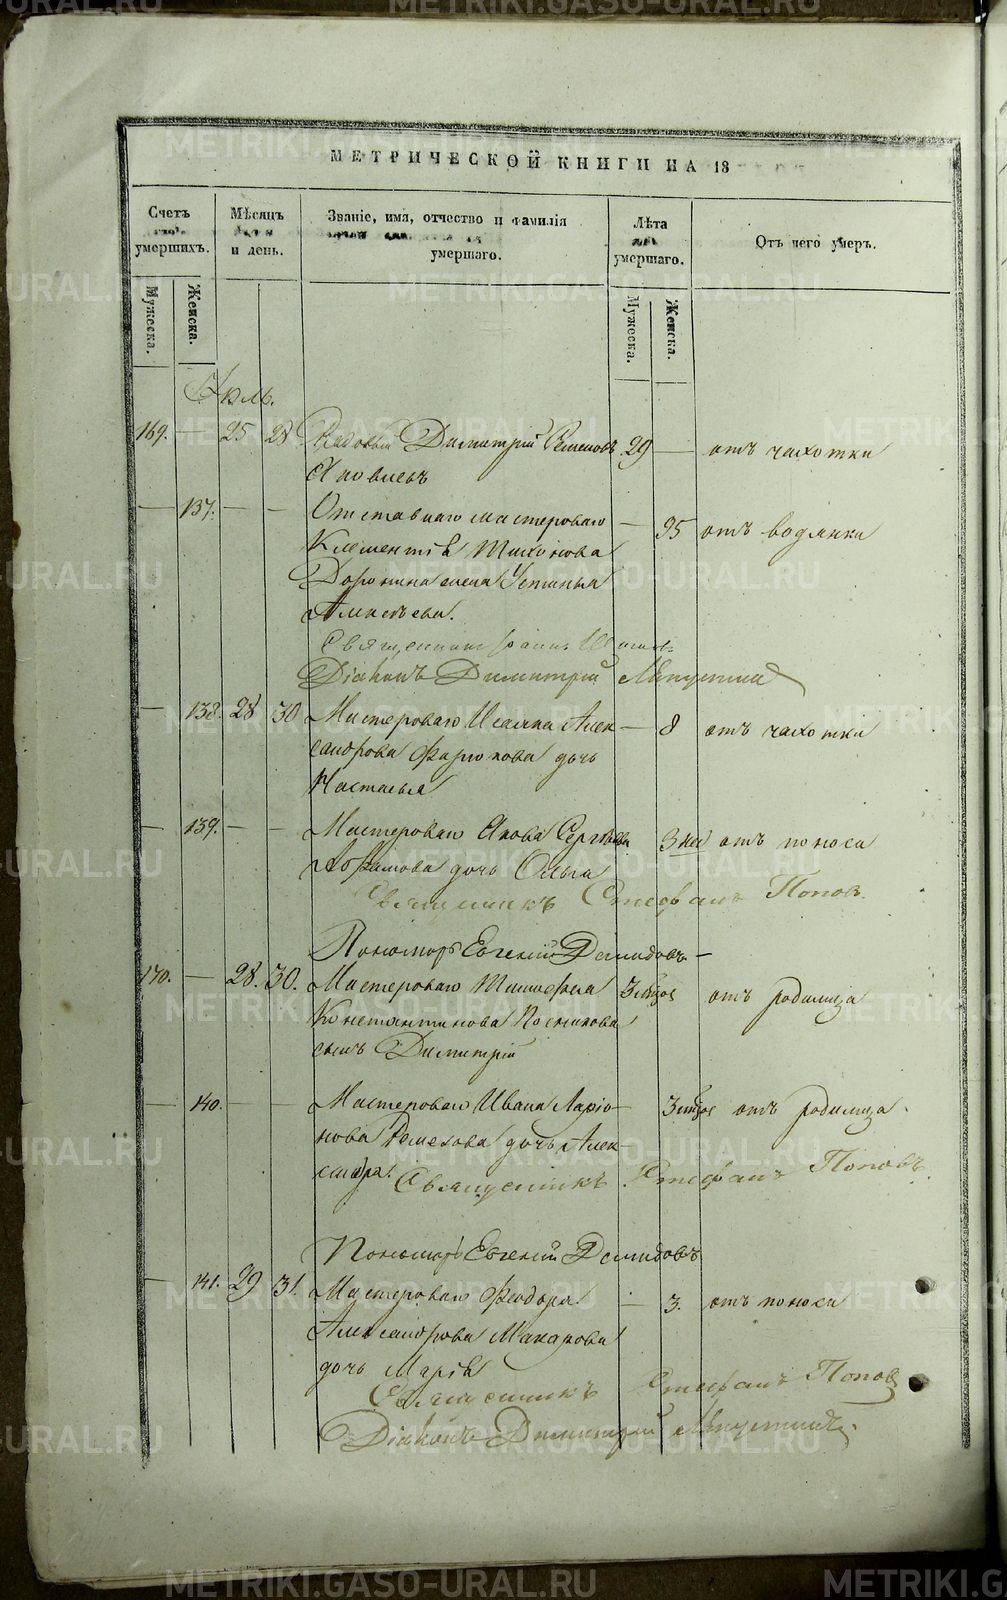 МЕТРИЧЕСКОЙ КНИГИ НА 18
Счетъ умершихъ.
Мѣсяцъ и день.
Званіе, имя, отчество и фамилія умершаго.
Лѣта умершаго.
Отъ чего умеръ.
Мужеска.
Женска.
Мужеска.
Женска.
Июль.
169. — 25 28 Рядовый Димитрій Семеновъ 29 — отъ чахотки
Яковлевъ
— 137. — — Отставнаго мастероваго — 95 отъ водянки
Клементія Тихонова
Доронина жена Устинья
Алексѣева.
Священникъ Іоаннъ
Діаконъ Димитрій
— 138. 28 30 Мастероваго Исаака Алек- — 8 отъ чахотки
сандрова дочь
Настасья
— 139. — — Мастероваго Якова Сергѣева 3 нед отъ поноса
дочь Ольга
Священникъ Стефанъ Поповъ.
Пономарь Евгеній Демидовъ
170. — 28. 30. Мастероваго Тимофея 3 мѣс отъ родимца
Константинова
сынъ Димитрій
— 140. — — Мастероваго Ивана Ларіо- 3 мѣс отъ родимца.
нова Ремезова дочь Алек-
сандра. Священникъ Стефанъ Поповъ
Пономарь Евгеній Демидовъ
— 141. 29 31. Мастероваго Феодора — 3. отъ поноса
Александрова Макарова
дочь Марія
Священникъ Стефанъ Поповъ
Діаконъ Димитрій
METRIKI.GASO-URAL.RU